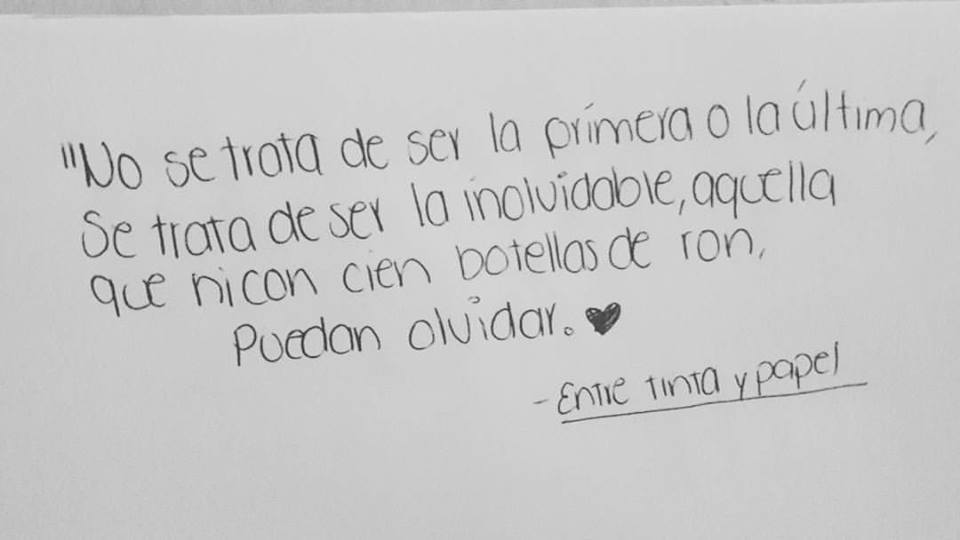 "No se trata de ser la primera o la última,
Se trata de ser la inolvidable, aquella
que ni con cien botellas de ron,
Puedan olvidar. ♥
- Entre tinta y papel